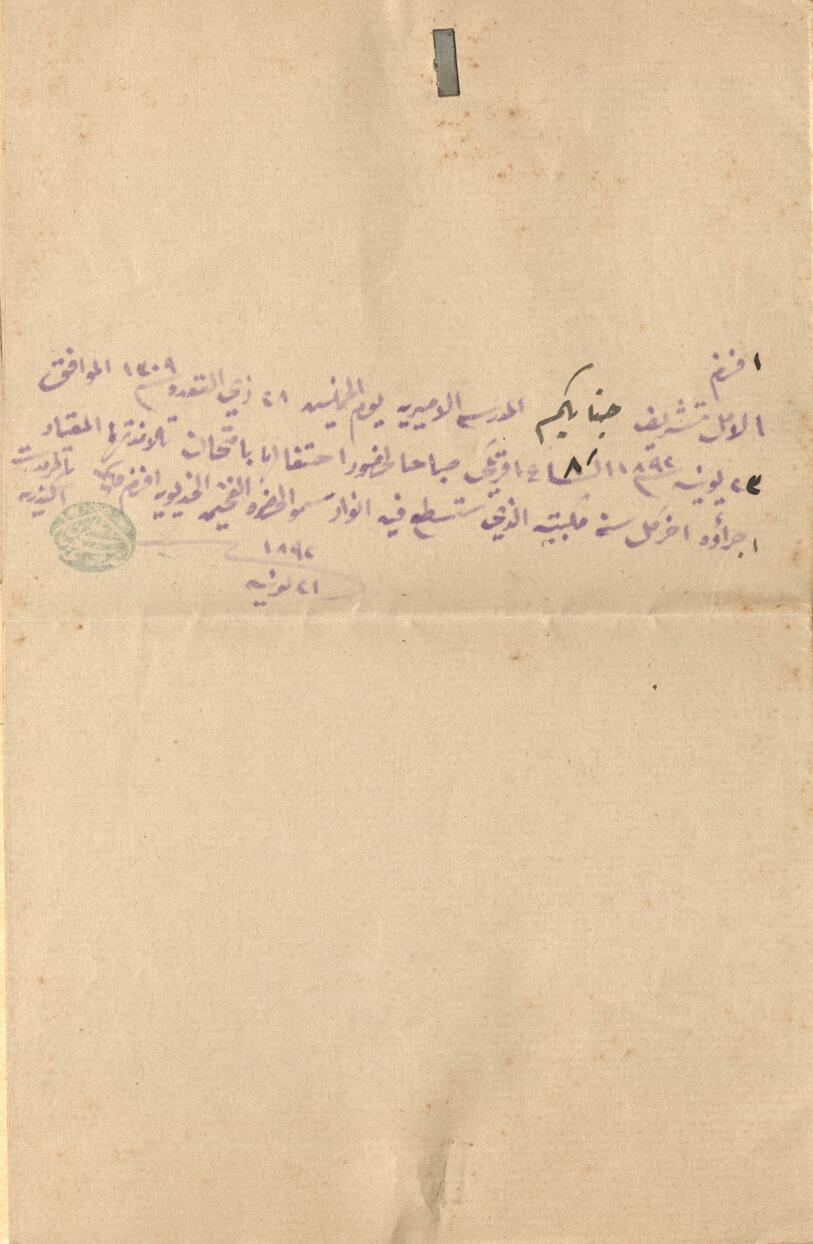 افندم
الامل تشريف جنابكم المدرسه الاميريه يوم الخميس ٢٨ ذي القعده سنة ١٣٠٩ الموافق
٢٣ يونيه سنة ١٨٩٢ الساعة ٨ افرنكي صباحا لحضور احتفالها بامتحان تلامذتها المعتاد
اجراؤه اخر كل سنة مكتبيه الذي ستسطع فيه انوار سمو الحضره الفخيمه الخديويه افندم
١٨٩٢
٢١ يونيه